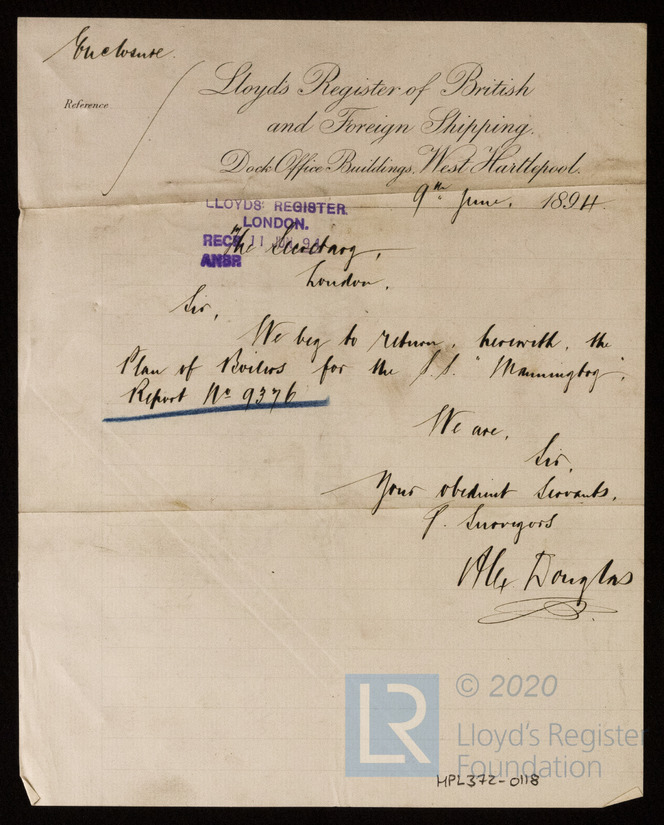 Enclosure.
Reference
Lloyd's Register of British
and Foreign Shipping.
Dock Office Buildings, West Hartlepool.
9th June, 1894.
LLOYDS' REGISTER.
LONDON.
RECD 11 JUN 94
ANSD
The Secretary,
London.
Sir,
We beg to return, herewith, the
Plan of Boilers for the S.S. "Manningtry",
Report No 9376
We are,
Sir,
Your obedient Servants,
P. Surveyors
Alex Douglas
LR
© 2020
Lloyd's Register
Foundation
MPL372-0118